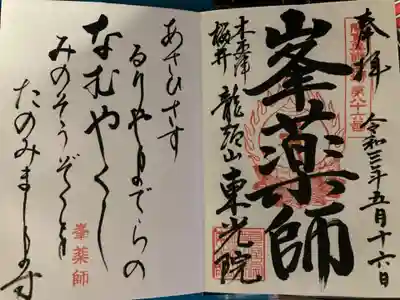 奉拝
令和三年五月十六日
峯薬師
木更津
桜井
龍頭山
東光院
あさひさす
るりややまでらの
なむやくし
みのそうぞくを
たのみまします
峯薬師